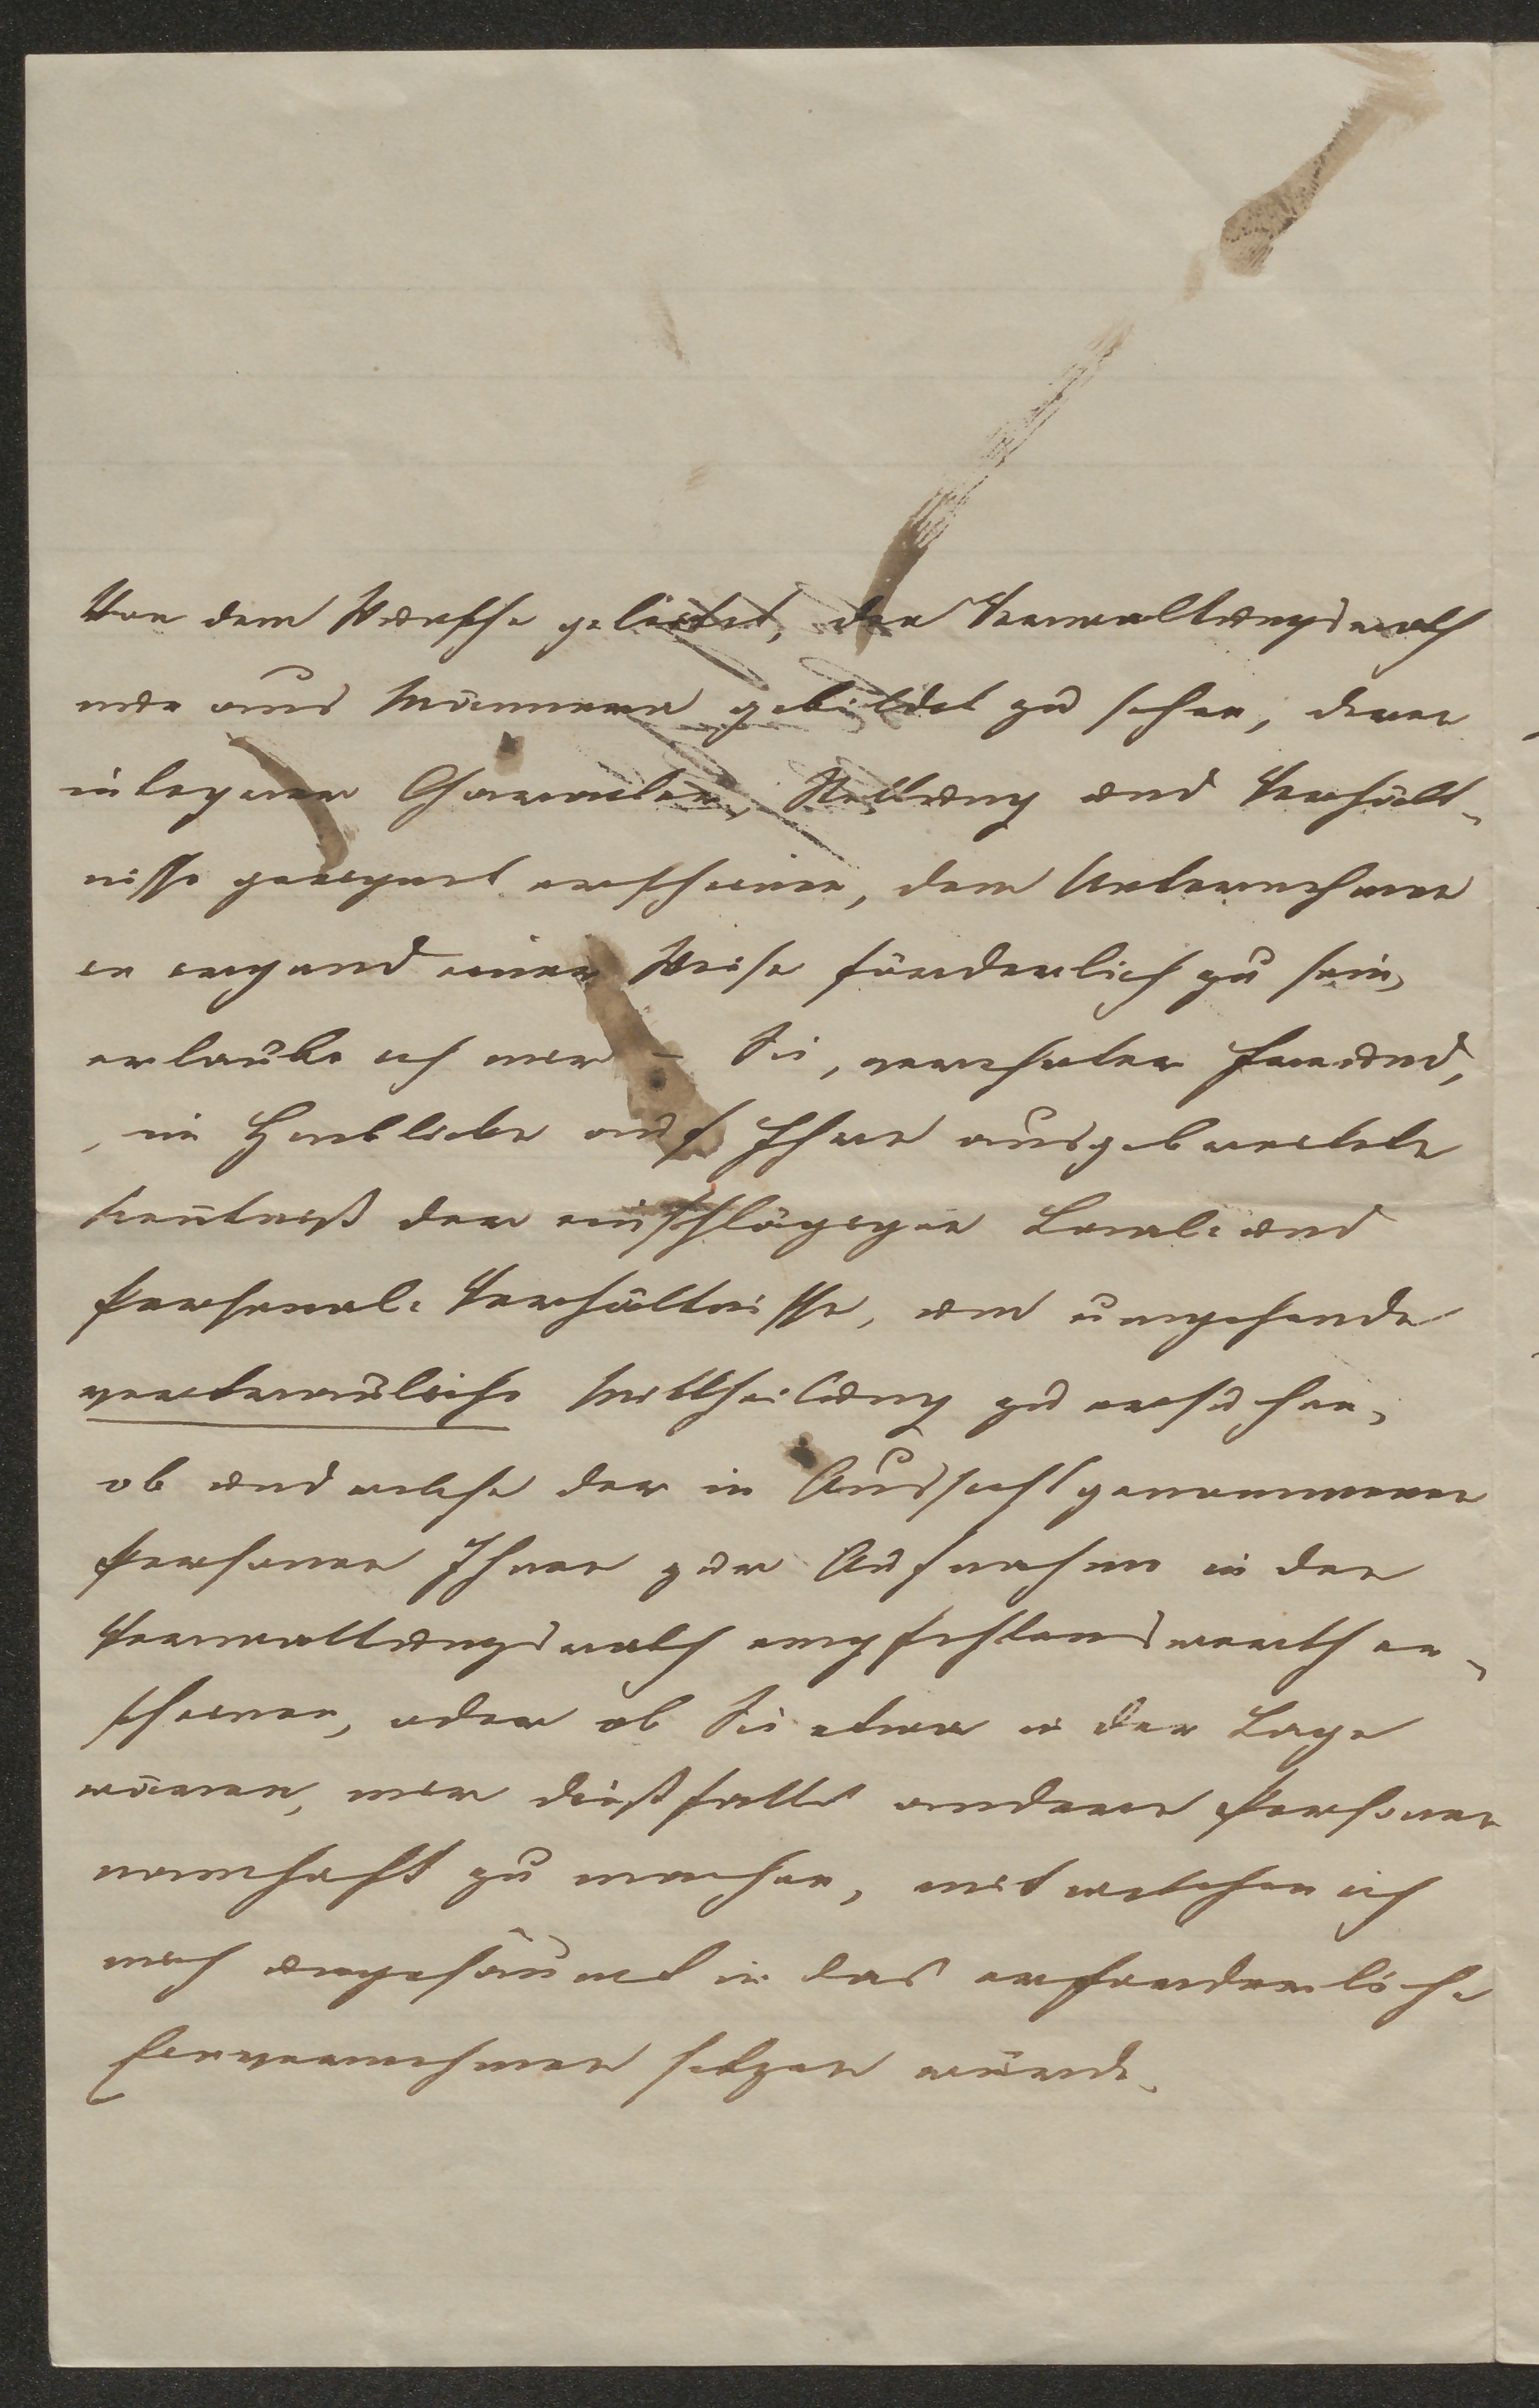 Von dem Wunsche geleitet, den Verwaltungsrath
nur aus Männern gebildet zu sehen, deren
integrer Character, Stellung und Verhält-
nisse geeignet erscheinen, dem Unternehmen
in irgend einer Weise förderlich zu sein,
erlaube ich mir – Sie, verehrter Freund,
, im Hinblicke auf Ihre ausgebreitete
Kenntniß der einschlägigen Local- und
Personal-Verhältnisse, um umgehende
vertrauliche Mittheilung zu ersuchen,
ob und welche der in Aussicht genommenen
Personen Ihnen zur Aufnahme in den
Verwaltungsrath empfehlenswerth er-
scheinen, oder ob Sie etwa in der Lage
wären, mir dießfalls andere Personen
namhaft zu machen, mit welchen ich
mich ungesäumt in das erforderliche
Einvernehmen setzen würde.